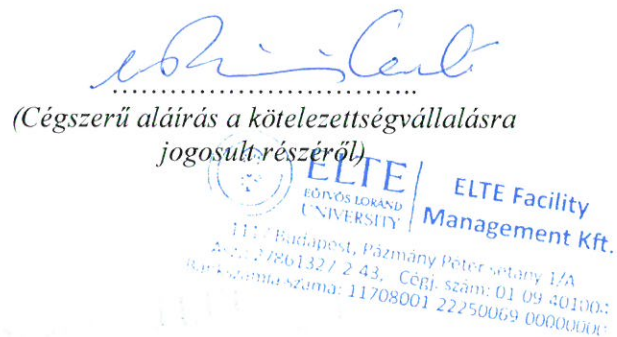 (Cégszerű aláírás a kötelezettségvállalásra
jogosult részéről)
ELTE
EÖTVÖS LORÁND
UNIVERSITY
ELTE Facility
Management Kft.
1117 Budapest, Pázmány Péter sétány 1/A
2 43, Cégj. szám: 01 09 401004
Bankszámla száma: 11708001 22250069 00000000